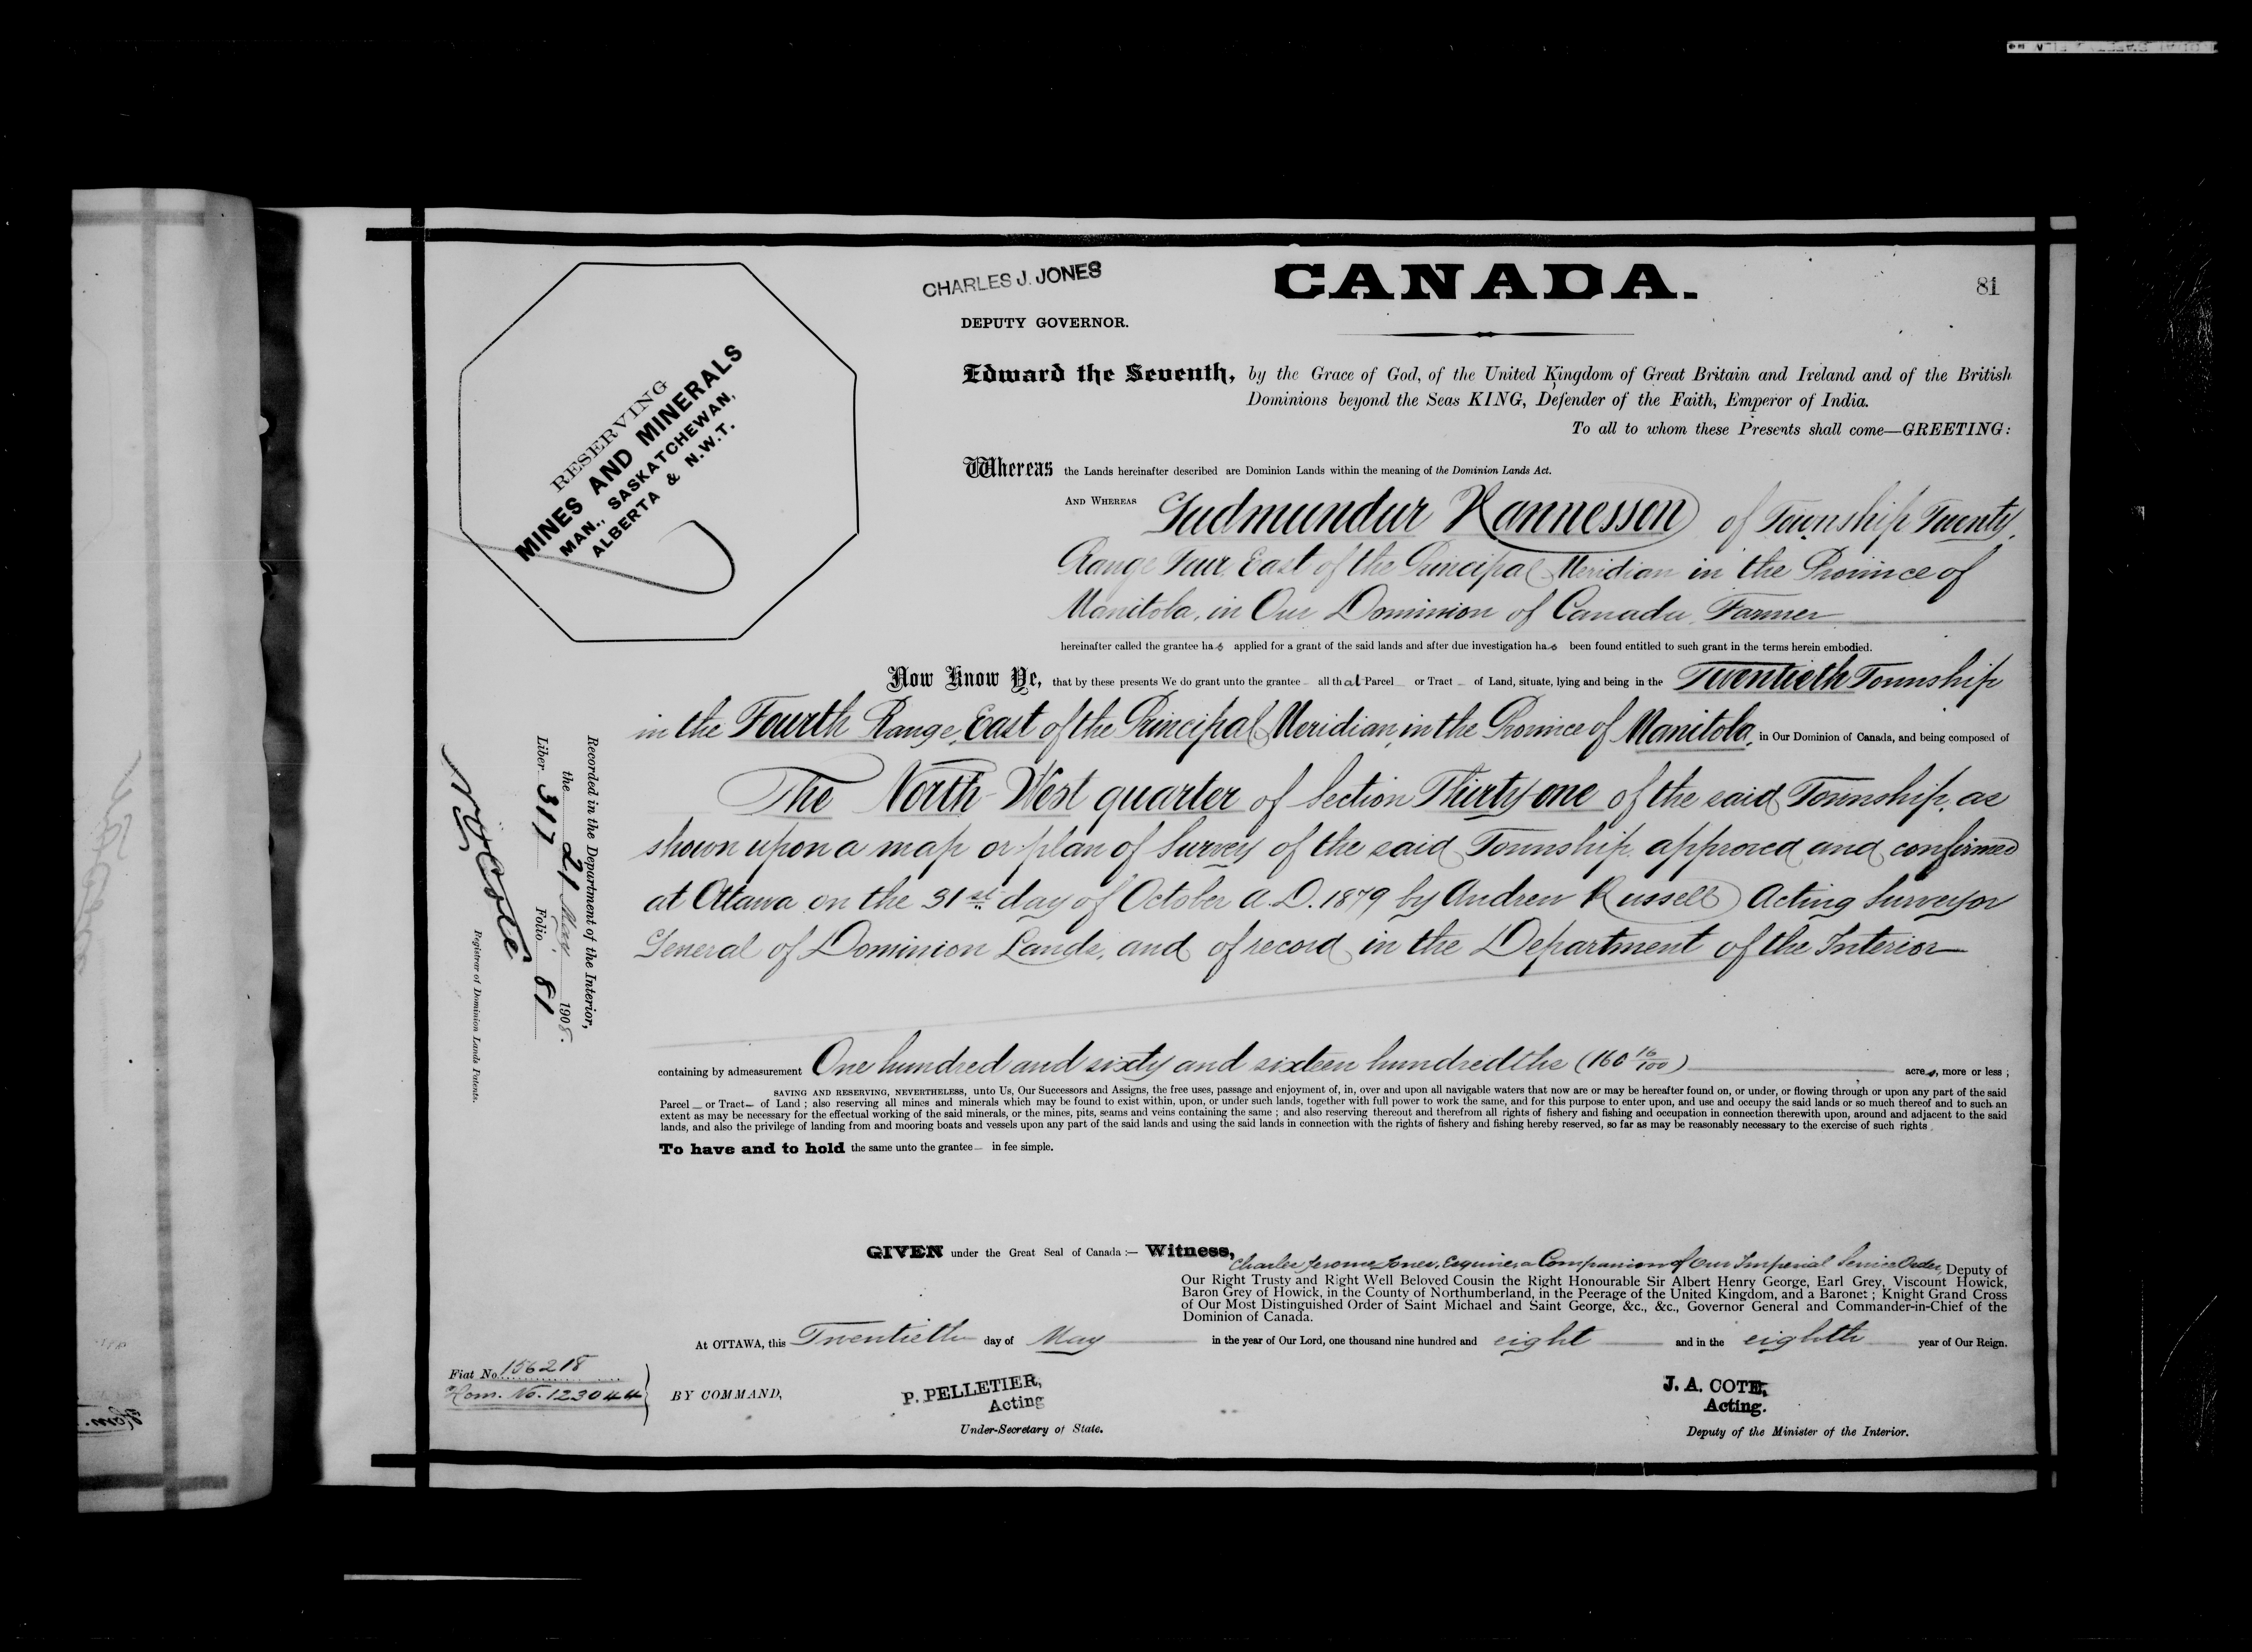 CANADA.
81
CHARLES J. JONES
DEPUTY GOVERNOR.
RESERVING
MINES AND MINERALS
MAN., SASKATCHEWAN,
ALBERTA & N.W.T.
Edward the Seventh, by the Grace of God, of the United Kingdom of Great Britain and Ireland and of the British
Dominions beyond the Seas KING, Defender of the Faith, Emperor of India.
To all to whom these Presents shall come—GREETING:
Whereas the Lands hereinafter described are Dominion Lands within the meaning of the Dominion Lands Act.
AND WHEREAS Gudmundur Hannessen of Township Twenty,
Range Four, East of the Principal Meridian in the Province of
Manitoba, in Our Dominion of Canada, Farmer
hereinafter called the grantee has applied for a grant of the said lands and after due investigation has been found entitled to such grant in the terms herein embodied.
Now Know Ye, that by these presents We do grant unto the grantee all that Parcel or Tract of Land, situate, lying and being in the Twentieth Township
in the Fourth Range, East of the Principal Meridian, in the Province of Manitoba, in Our Dominion of Canada, and being composed of
The North West quarter of Section Thirty one of the said Township, as
shown upon a map or plan of Survey of the said Township approved and confirmed
at Ottawa on the 31st day of October A.D. 1879 by Andrew Russell Acting Surveyor
General of Dominion Lands, and of record in the Department of the Interior
containing by admeasurement One hundred and sixty and sixteen hundredths (160 16/100) acres, more or less ;
SAVING AND RESERVING, NEVERTHELESS, unto Us, Our Successors and Assigns, the free uses, passage and enjoyment of, in, over and upon all navigable waters that now are or may be hereafter found on, or under, or flowing through or upon any part of the said
Parcel or Tract of Land ; also reserving all mines and minerals which may be found to exist within, upon, or under such lands, together with full power to work the same, and for this purpose to enter upon, and use and occupy the said lands or so much thereof and to such an
extent as may be necessary for the effectual working of the said minerals, or the mines, pits, seams and veins containing the same ; and also reserving thereout and therefrom all rights of fishery and fishing and occupation in connection therewith upon, around and adjacent to the said
lands, and also the privilege of landing from and mooring boats and vessels upon any part of the said lands and using the said lands in connection with the rights of fishery and fishing hereby reserved, so far as may be reasonably necessary to the exercise of such rights
To have and to hold the same unto the grantee in fee simple.
GIVEN under the Great Seal of Canada :— Witness,
Charles Jerome Jones, Esquire, a Companion of Our Imperial Service Order, Deputy of
Our Right Trusty and Right Well Beloved Cousin the Right Honourable Sir Albert Henry George, Earl Grey, Viscount Howick,
Baron Grey of Howick, in the County of Northumberland, in the Peerage of the United Kingdom, and a Baronet ; Knight Grand Cross
of Our Most Distinguished Order of Saint Michael and Saint George, &c., &c., Governor General and Commander-in-Chief of the
Dominion of Canada.
At OTTAWA, this Twentieth day of May in the year of Our Lord, one thousand nine hundred and eight and in the eighth year of Our Reign.
Fiat No. 156218
Hom. No. 123044
BY COMMAND,
P. PELLETIER,
Acting
Under-Secretary of State.
J. A. COTE,
Acting.
Deputy of the Minister of the Interior.
Recorded in the Department of the Interior,
the 21 May 1908.
Liber 317 Folio 81
Cote
Registrar of Dominion Lands Patents.